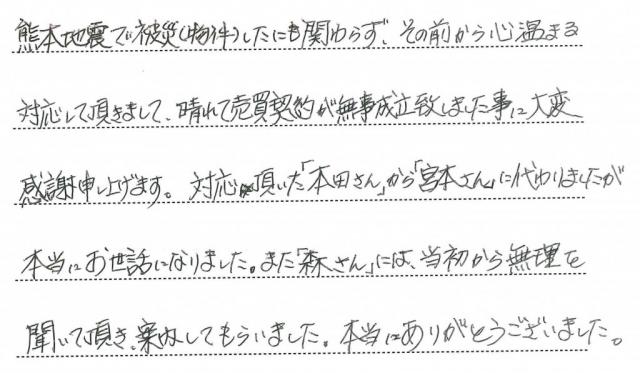 熊本地震で被災(物件)したにも関わらず、その前から心温まる
対応して頂きまして、晴れて売買契約が無事成立致しました事に大変
感謝申し上げます。対応頂いた「本田さん」から「宮本さん」に代わりましたが
本当にお世話になりました。また「森さん」には、当初から無理を
聞いて頂き、案内してもらいました。本当にありがとうございました。